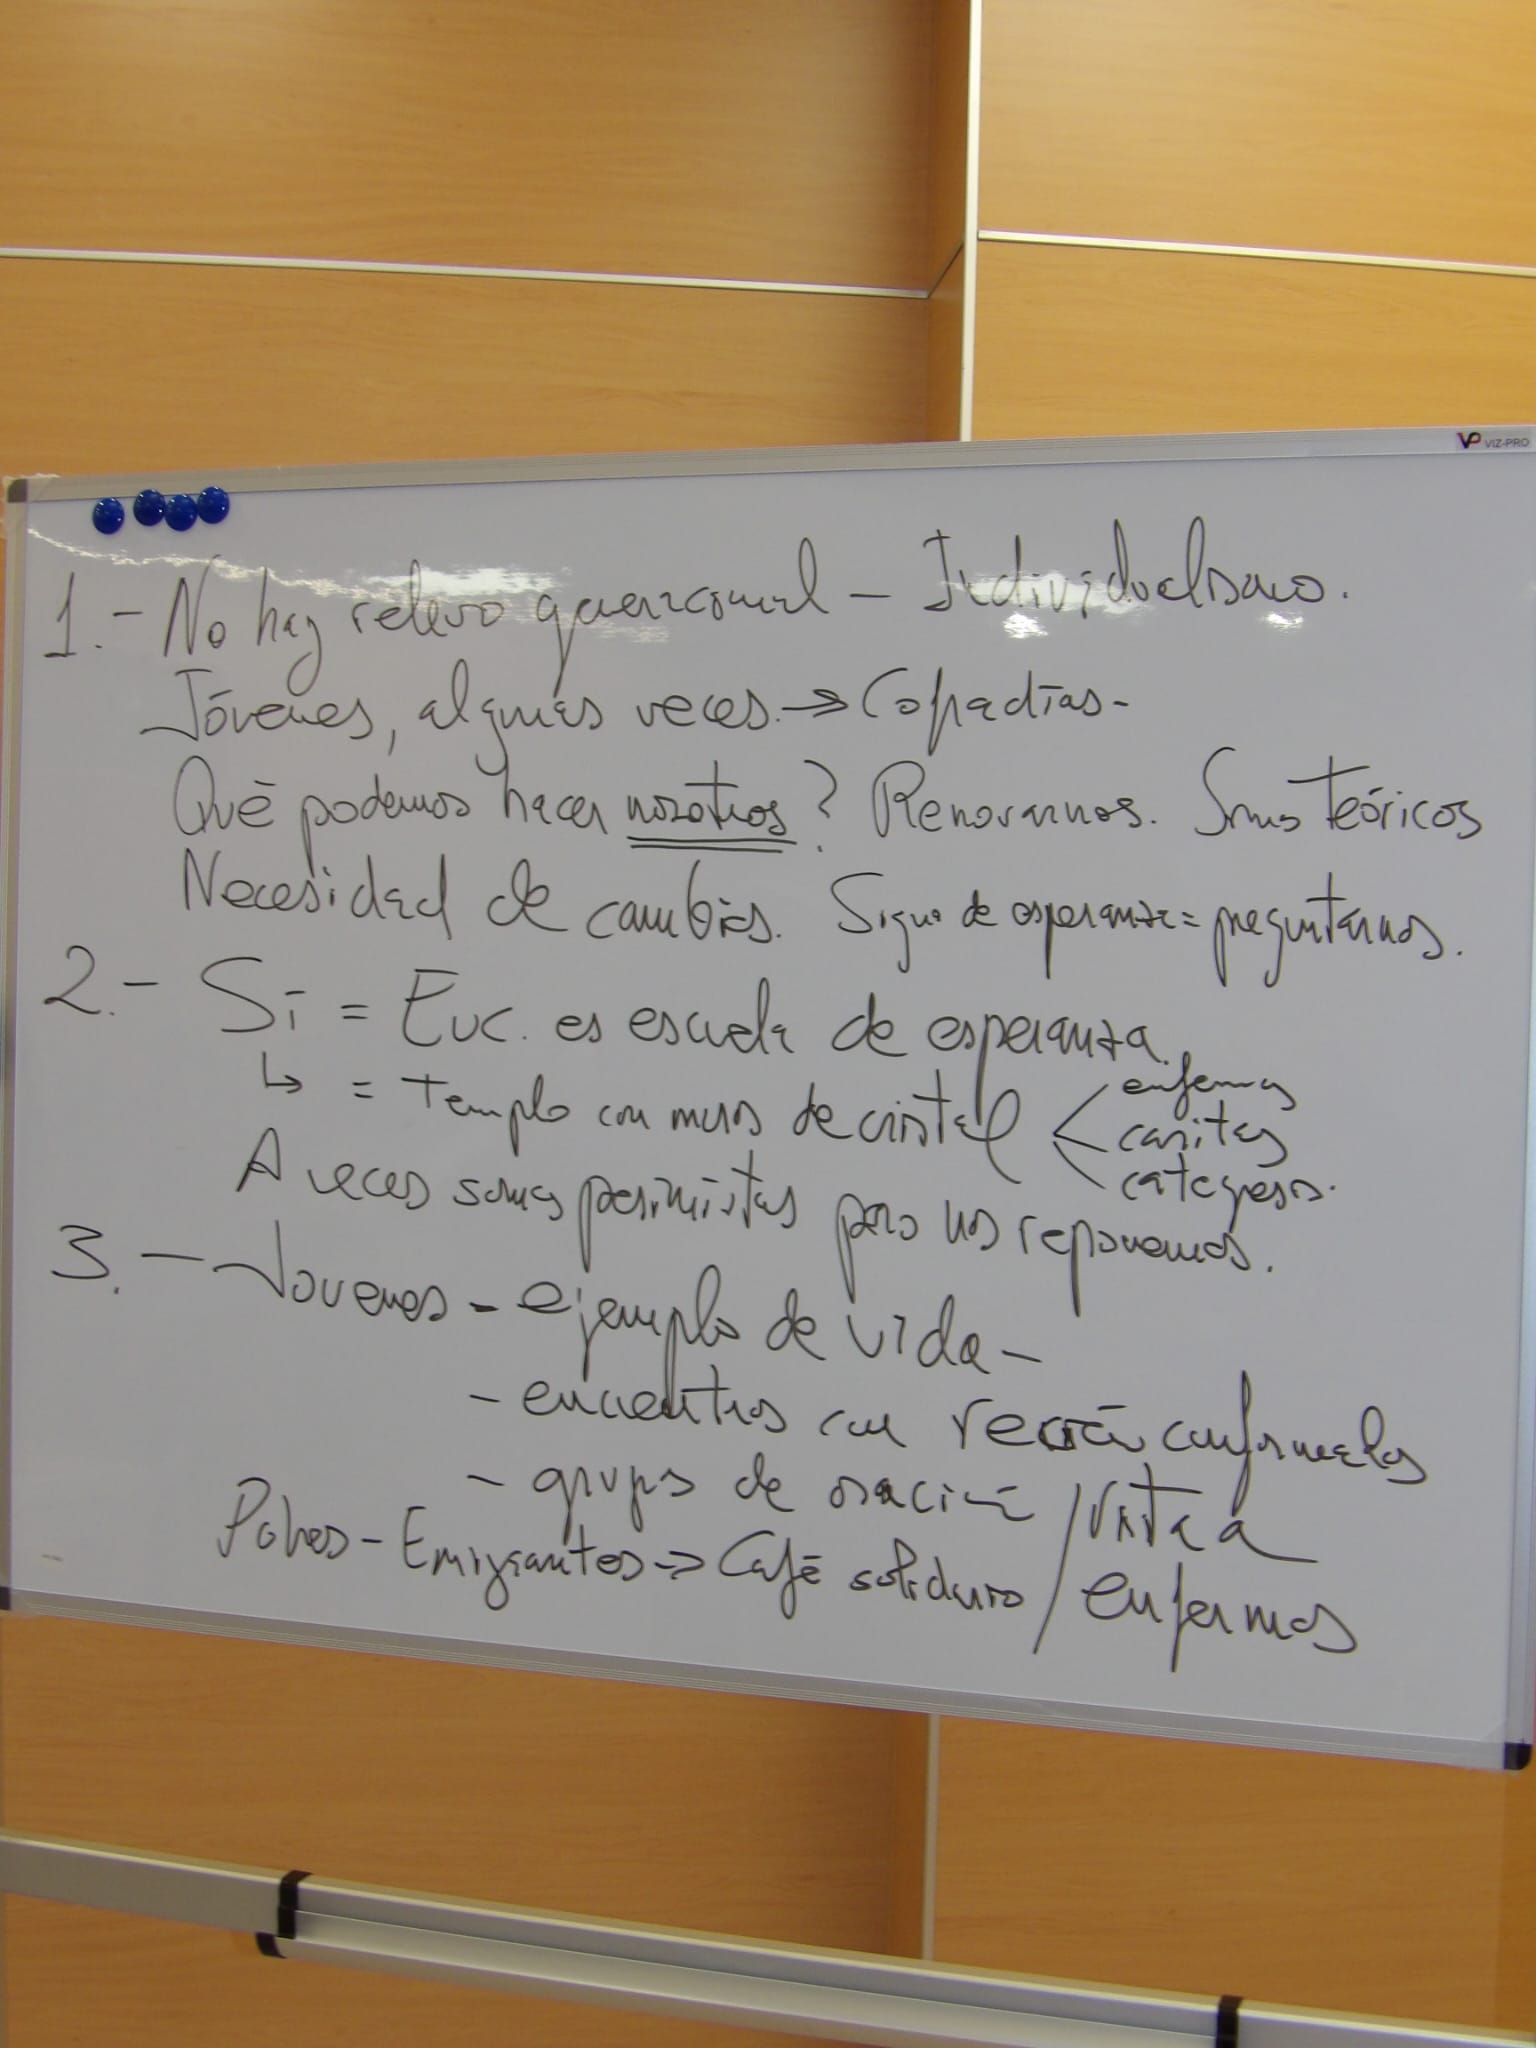 VP VIZ-PRO
1.- No hay relevo generacional - Individualismo.
Jóvenes, algunas veces. → Cofradías-
Qué podemos hacer nosotros? Renovarnos. Somos teóricos
Necesidad de cambios. Signo de esperanza = preguntarnos.
2.- Sí = Euc. es escuela de esperanza.
↳ = Templo con muros de cristal < enfermos
caritas
catequesis.
A veces somos pesimistas pero nos reponemos.
3.- Jovenes - ejemplo de vida -
- encuentros con recién confirmados
- grupos de oración / Visita a
Pobres - Emigrantes → Café solidario / enfermos